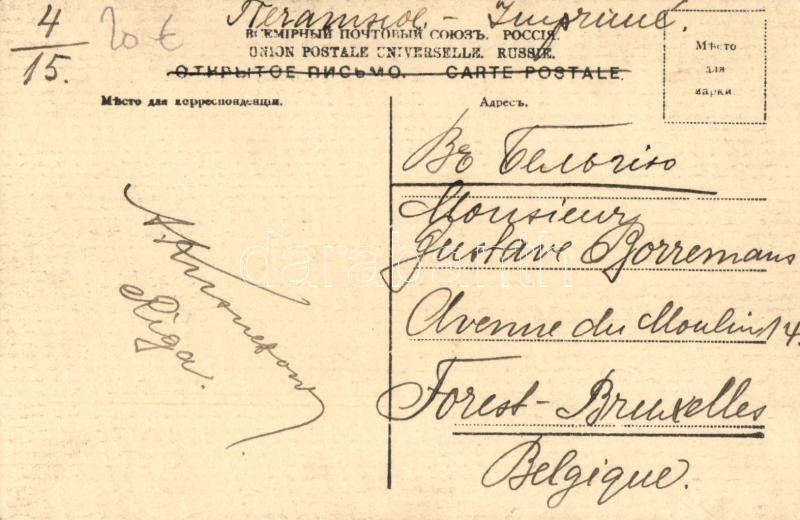 4/15.
20 €
Печатное, - Imprimé.
ВСЕМІРНЫЙ ПОЧТОВЫЙ СОЮЗЪ. РОССІЯ.
UNION POSTALE UNIVERSELLE. RUSSIE.
ОТКРЫТОЕ ПИСЬМО. CARTE POSTALE.
Мѣсто
для
марки
Мѣсто для корреспонденціи.
Адресъ.
Въ Бельгію
Monsieur
Gustave Borremans
Avenue du Moulin 14.
Forest-Bruxelles
Belgique.
Riga.
darabanth